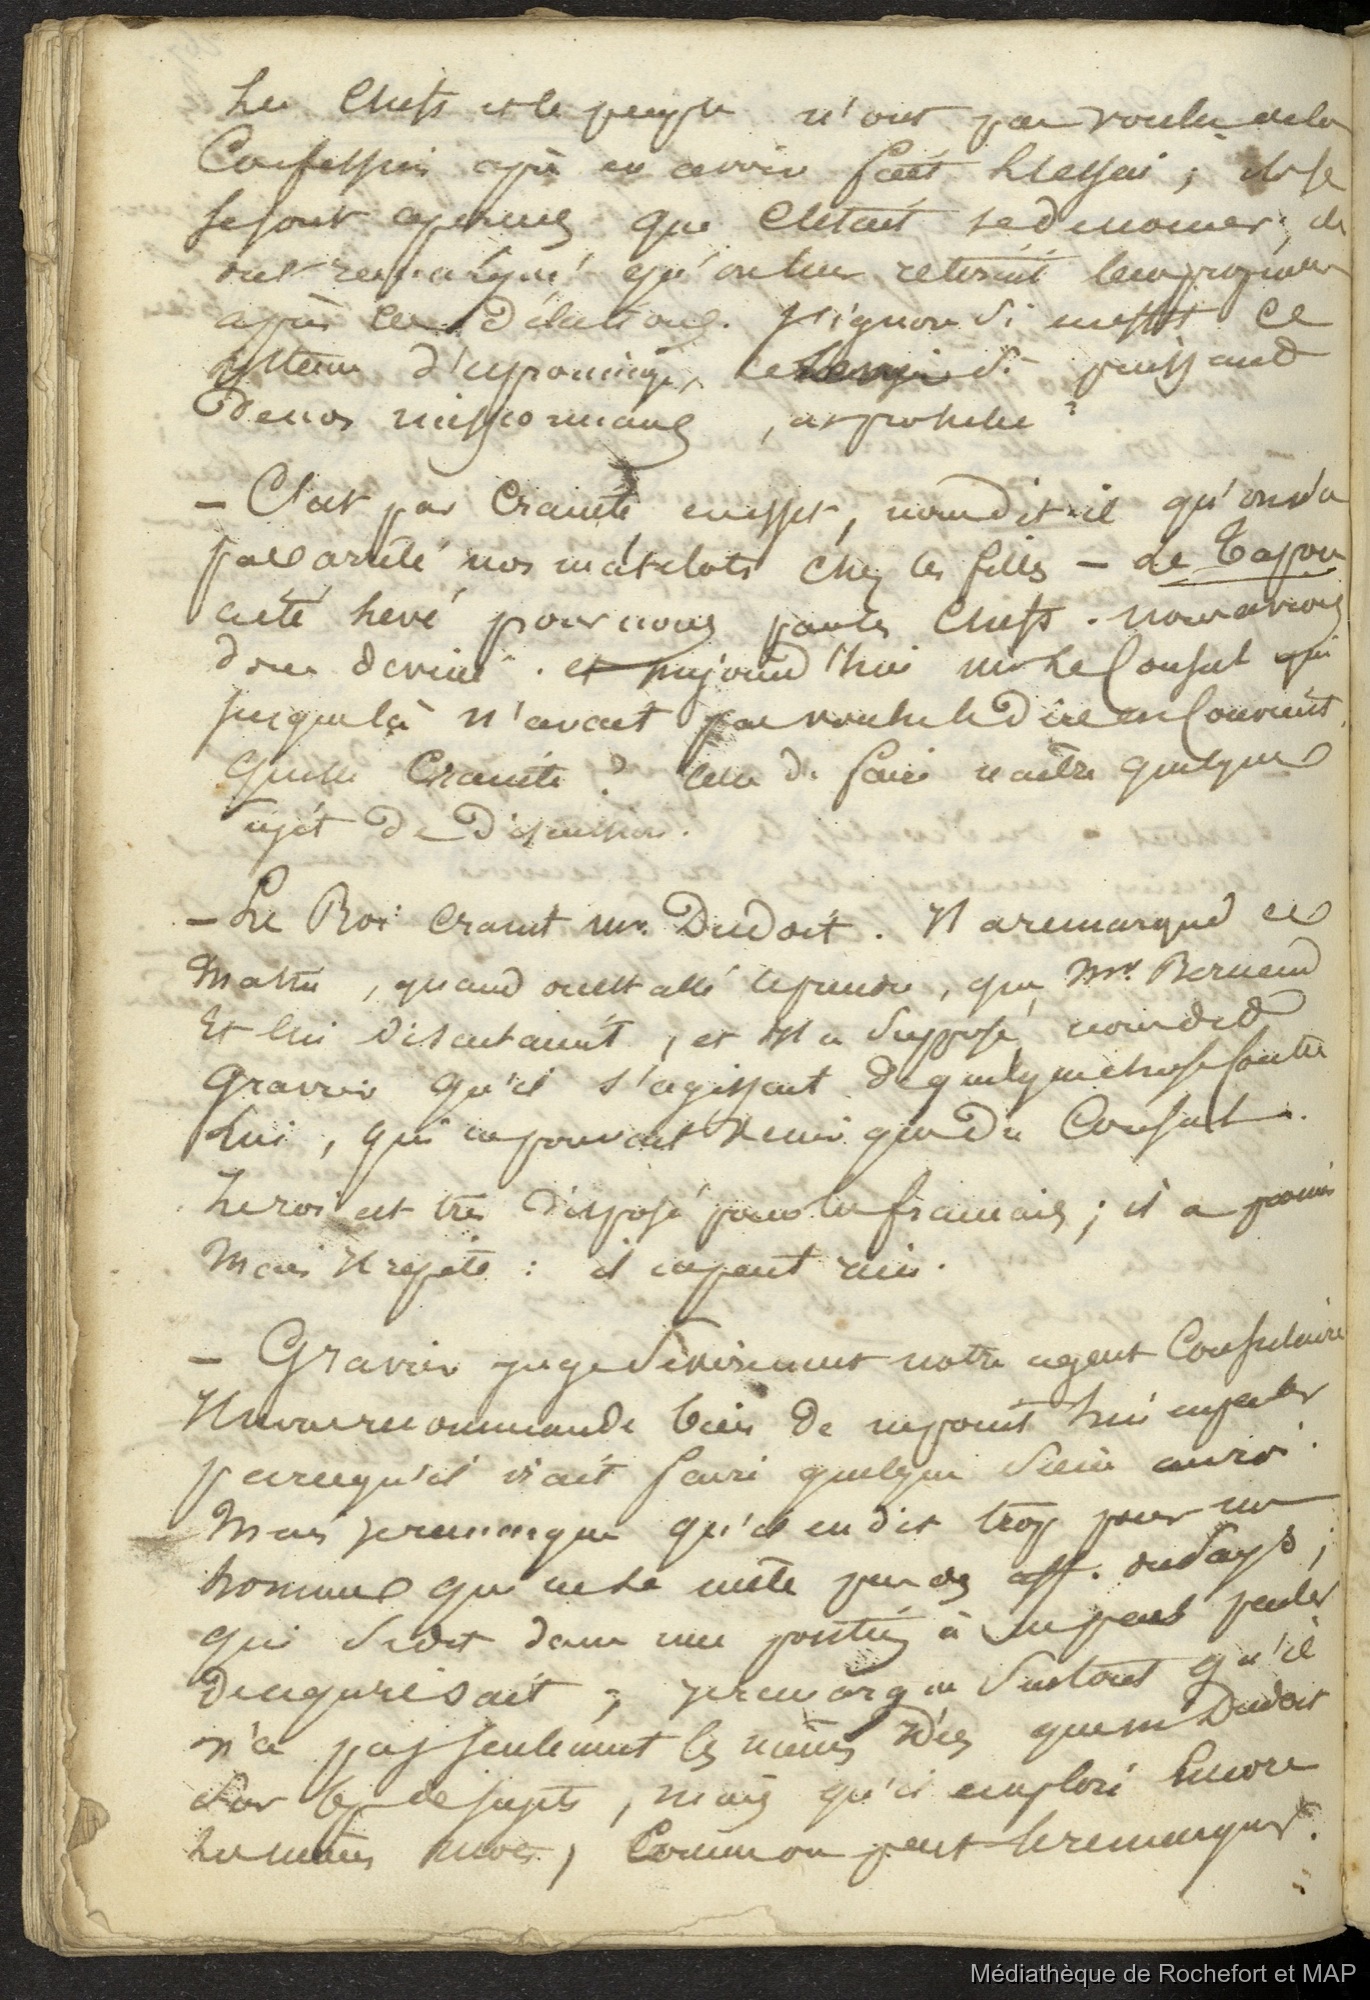 Les Chefs et le peuple n'ont pas voulu de la
Confession après en avoir fait l'essai ; ils se
se sont aperçus que C'etait se denoncer ; ils
ont remarqué qu'on leur retenait
après les Délations. J'ignore si en effet ce
système d'espionnage, le si puissant
De nos missionnaires, a
— C'est par Crainte en effet, nous dit-il qu'on n'a
pas arrêté nos matelots chez les filles — le Tapou
a été levé pour nous par les Chefs. nous avions
donc deviné. et aujourd'hui mr le Consul qui
jusque là n'avait pas voulu le Dire en Convient.
Quelle Crainte ? celle de faire naître quelque
sujet de Discussion.
— Le Roi craint mr. Dudoit. Il a remarqué ce
Matin, quand on est allé le prendre, que Mr. Bernard
Et lui discutaient, et il a supposé nous dit
Gravier qu'il s'agissait de quelque chose Contre
Lui, qui ne pouvait venir que du Consul.
Le roi est très disposé pour les français ; il a promis
Mais il repète : il ne peut rien.
— Gravier juge sévèrement notre agent Consulaire
Il nous recommande bien de ne point lui en parler
parcequ'il irait faire quelque scène au roi.
Mais je remarque qu'il en dit trop pour un
homme qui ne se mêle pas des aff. du Pays ;
qui se dit dans une position à ne pas parler
De ce qu'il sait ; je remarque surtout qu'il
n'a pas seulement les mêmes idées que mr Dudoit
Sur les sujets, mais qu'il emploie Encore
Les mêmes mots, Comme on peut le remarquer.